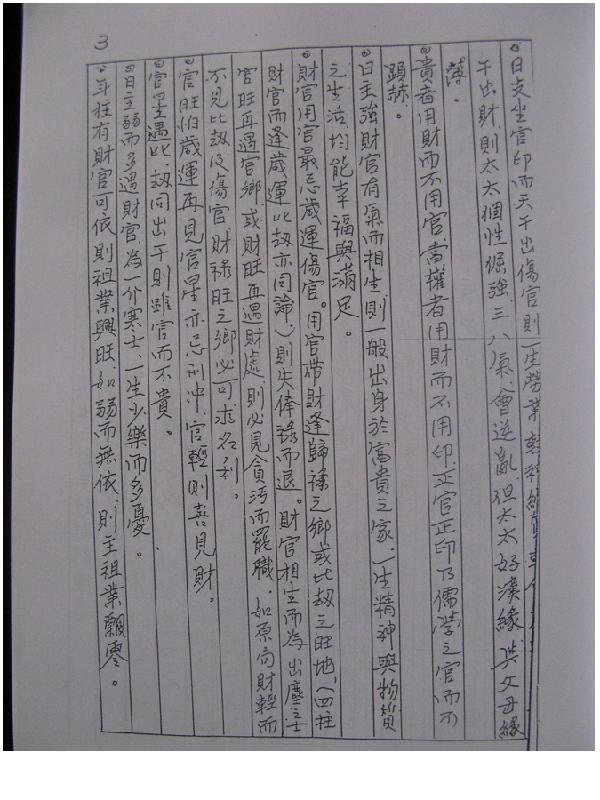 3
日支坐官印而天干出傷官則一生勞業
干出財則太太個性倔強三八氣會逆亂但太太好漢緣與父母緣
薄。
貴者用財而不用官當權者用財而不用印正官正印乃儒學之官而不
顯赫。
日主強財官有氣而相生則一般出身於富貴之家、一生精神與物質
之生活均能幸福與滿足。
財官用官最忌歲運傷官。用官帶財逢歸祿之鄉或比劫之旺地、(四柱
財官而逢歲運比劫亦同論)則失俸祿而退。財官相生而為出塵之士
官旺再遇官鄉或財旺再遇財處、則必見貪污而罷職．如原局財輕而
不見比劫及傷官財祿旺之鄉必可求名利。
官旺怕歲運再見官星亦忌刑冲官輕則喜見財。
官星遇比、劫同出干則雖官而不貴。
日主弱而多遇財官為一介寒士、一生少樂而多憂。
年柱有財官可依則祖業興旺、如弱而無依、則主祖業飄零。